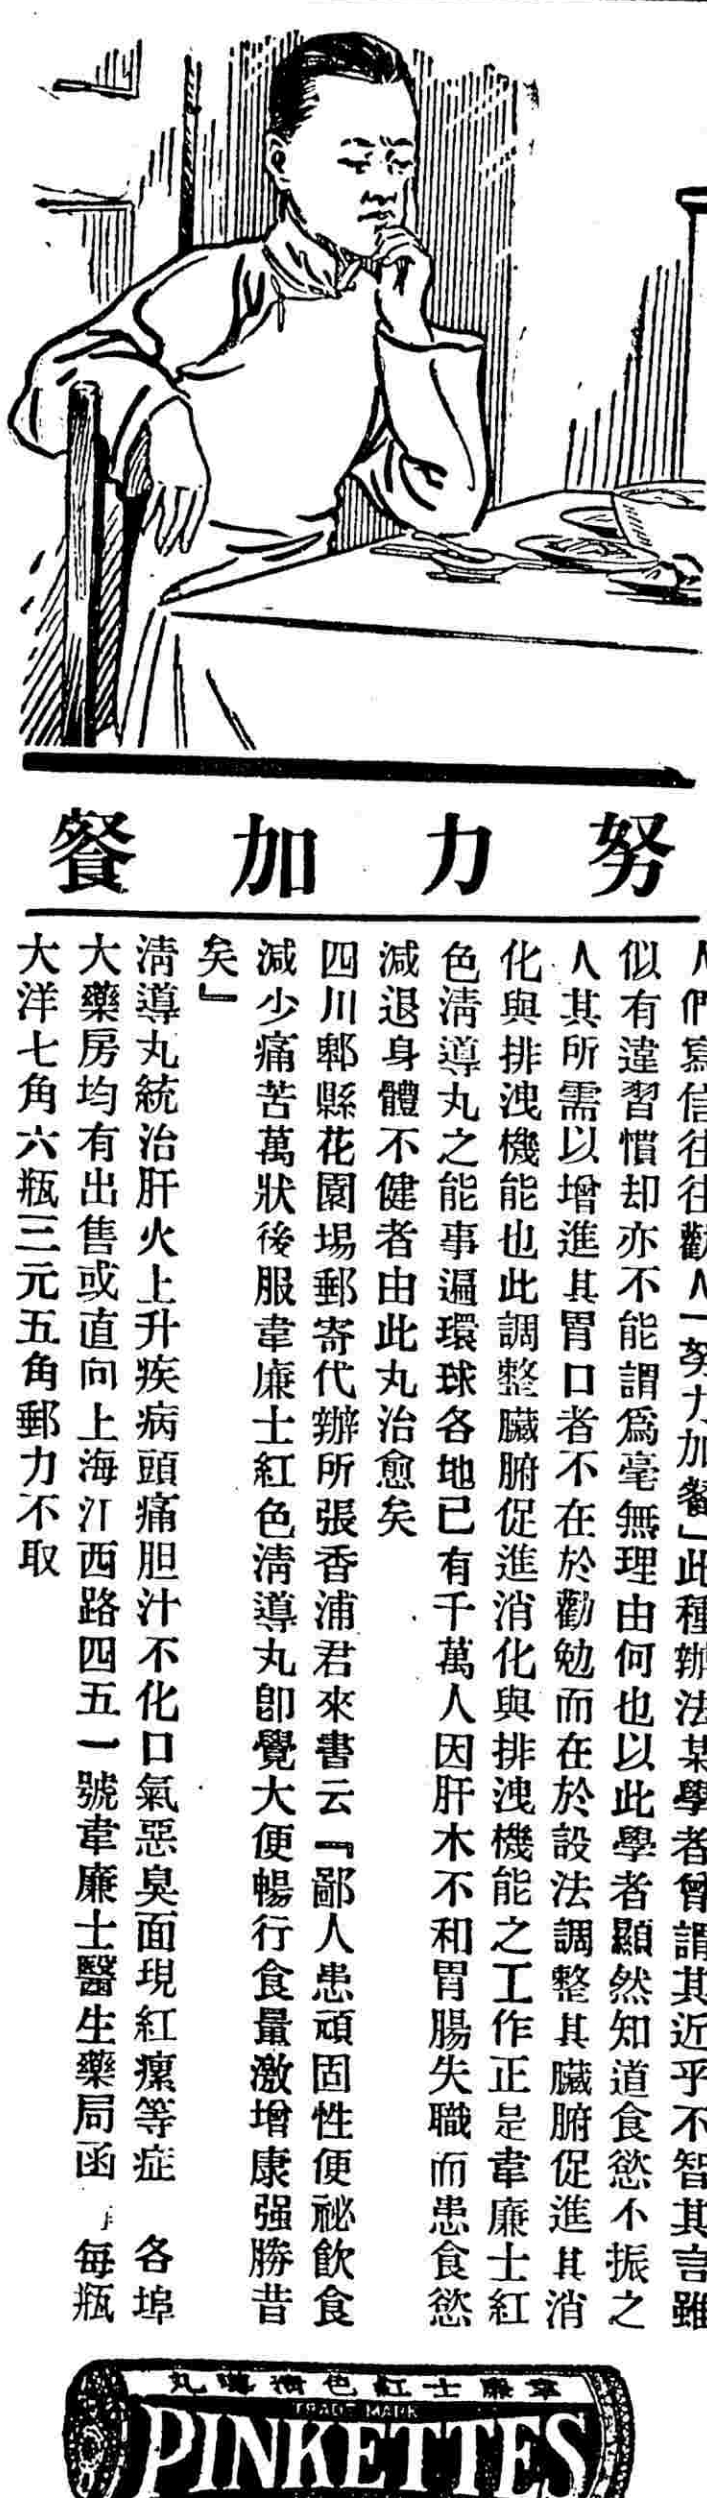 努力加餐
人們寫信往往勸人「努力加餐」此種辦法某學者曾謂其近乎不智其言雖
似有違習慣却亦不能謂爲毫無理由何也以此學者顯然知道食慾不振之
人其所需以增進其胃口者不在於勸勉而在於設法調整其臟腑促進其消
化與排洩機能也此調整臟腑促進消化與排洩機能之工作正是韋廉士紅
色淸導丸之能事遍環球各地已有千萬人因肝木不和胃腸失職而患食慾
減退身體不健者由此丸治愈矣
四川郫縣花園場郵寄代辦所張香浦君來書云『鄙人患頑固性便祕飲食
減少痛苦萬狀後服韋廉士紅色淸導丸卽覺大便暢行食量激增康强勝昔
矣』
淸導丸統治肝火上升疾病頭痛胆汁不化口氣惡臭面現紅瘰等症 各埠
大藥房均有出售或直向上海江西路四五一號韋廉士醫生藥局函 每瓶
大洋七角六瓶三元五角郵力不取
韋廉士紅色淸導丸
TRADE MARK
PINKETTES